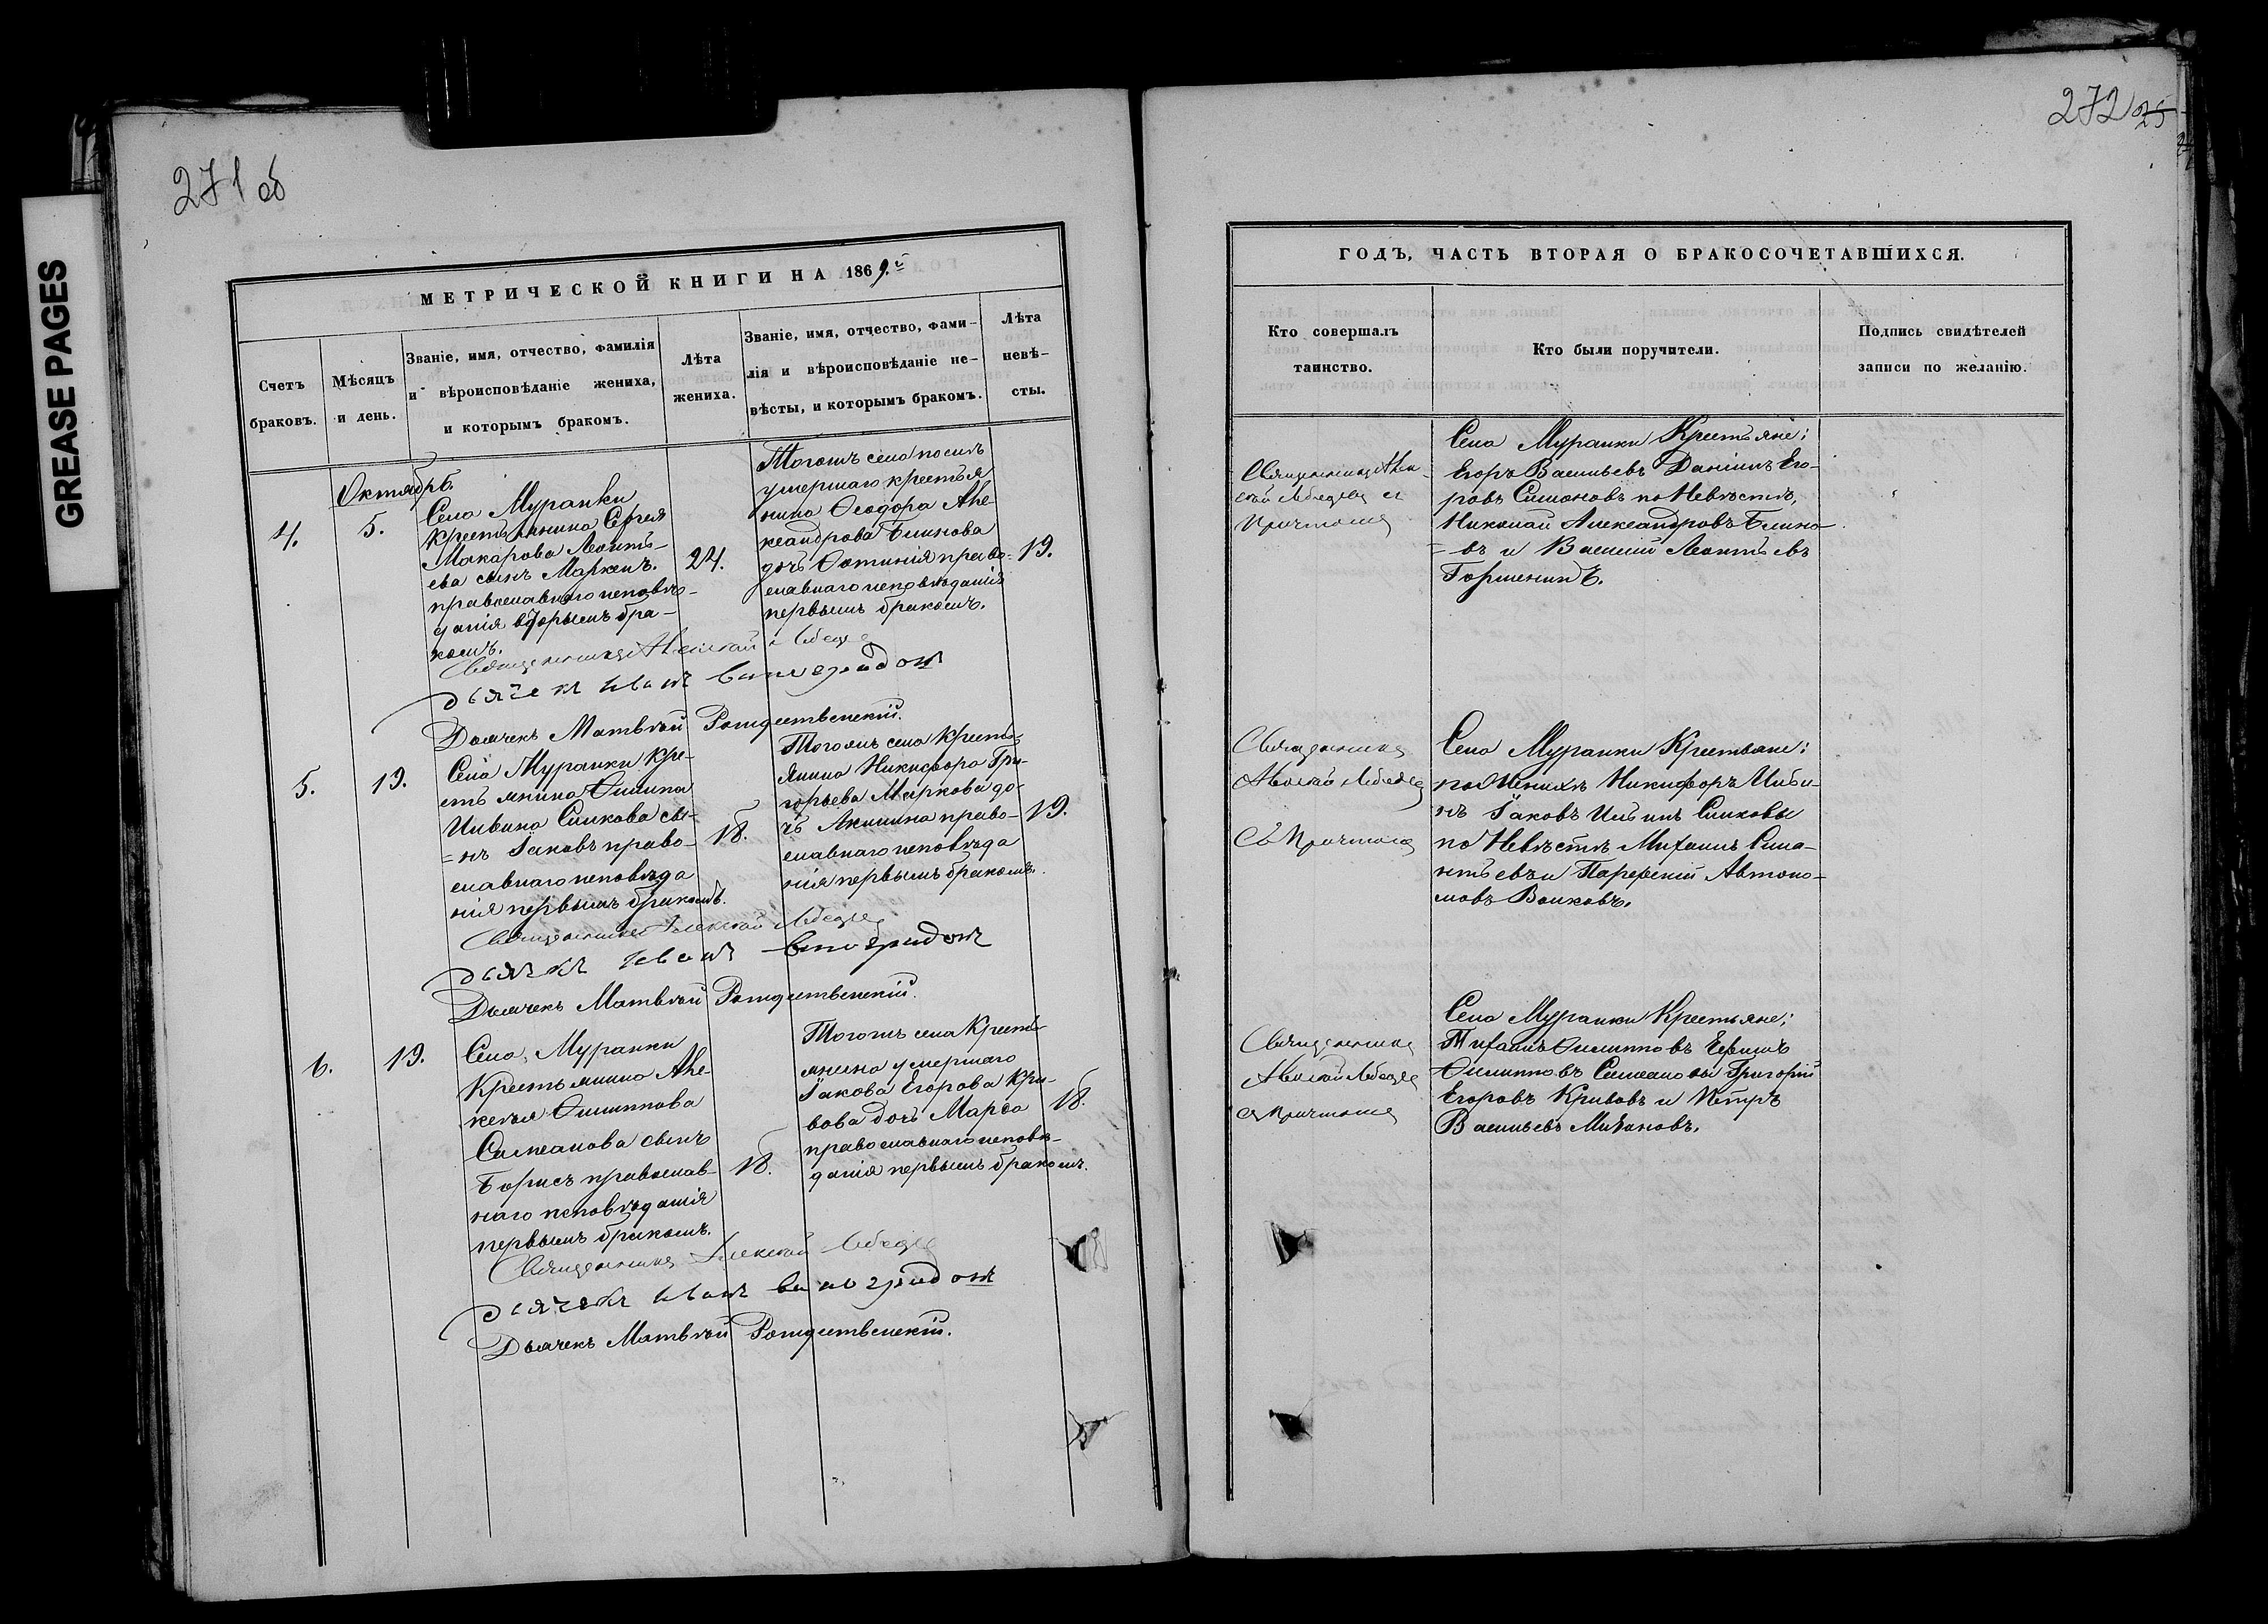 GREASE PAGES
271 об
МЕТРИЧЕСКОЙ КНИГИ НА 1869.й
Счетъ браковъ.
Мѣсяцъ и день.
Званіе, имя, отчество, фамилія
и вѣроисповѣданіе жениха,
и которымъ бракомъ.
Лѣта
жениха.
Званіе, имя, отчество, фами-
лія и вѣроисповѣданіе не-
вѣсты, и которымъ бракомъ.
Лѣта
невѣ-
сты.
Октябрь.
4.
5.
Села Муранки
Крестьянина Сергея
Макарова Леонть-
ева сынъ Маркелъ.
православнаго исповѣ-
данія вторымъ бра-
комъ.
24.
Тогожъ села послѣ
умершаго крестья
нина Ѳеодора Але-
ксандрова Блинова
дочь Ѳотинія право-
славнаго исповѣданія
первымъ бракомъ.
19.
Священникъ Алексѣй Лебедев
дьячекъ Иванъ виноградовъ
Дьячекъ Матвѣй Рождественскій.
5.
19.
Села Муранки Кре-
стьянина Филипа
Ильина Силкова сы-
=нъ Іаковъ право-
славнаго исповѣда
нія первымъ бракомъ.
18.
Тогожъ села Кресть
янина Никифора Гри-
горьева Маркова до-
чь Акилина право-
славнаго исповѣда
нія первымъ бракомъ.
19.
Священникъ Алексѣй Лебедев
дьячекъ Иванъ виноградовъ
Дьячекъ Матвѣй Рождественскій.
6.
19.
Села Муранки
Крестьянина Але-
ксѣя Филиппова
сынъ
Борисъ православ-
наго исповѣданія
первымъ бракомъ.
18.
Тогожъ села Кресть
янина умершаго
Іакова Егорова Кри-
вова дочь Марѳа
православнаго исповѣ-
данія первымъ бракомъ.
18.
Священникъ Алексѣй Лебедев
дьячекъ Иванъ виноградовъ
Дьячекъ Матвѣй Рождественскій.
272
25
ГОДЪ, ЧАСТЬ ВТОРАЯ О БРАКОСОЧЕТАВШИХСЯ.
Кто совершалъ
таинство.
Кто были поручители.
Подпись свидѣтелей
записи по желанію.
Священникъ Але
ксѣй Лебедев съ
Причтомъ
Села Муранки Крестьяне:
Егоръ Васильевъ Даніилъ Его-
ровъ Симоновъ по Невѣстѣ,
Николай Александровъ Блино-
=въ и Василій Леонтьевъ
Горшенинъ.
Священникъ
Алексѣй Лебедев
Съ Причтомъ
Села Муранки Крестьяне:
по Женихѣ Никифоръ Ильи-
нъ Іаковъ Ильинъ Силковы
по Невѣстѣ Михаилъ
и Автоно-
мовъ Волковъ.
Священникъ
Алексѣй Лебедев
съ Причтомъ
Села Муранки Крестьяне;
Михаилъ Филипповъ
Филипповъ Григорій
Егоровъ Кривовъ и Петръ
Васильевъ